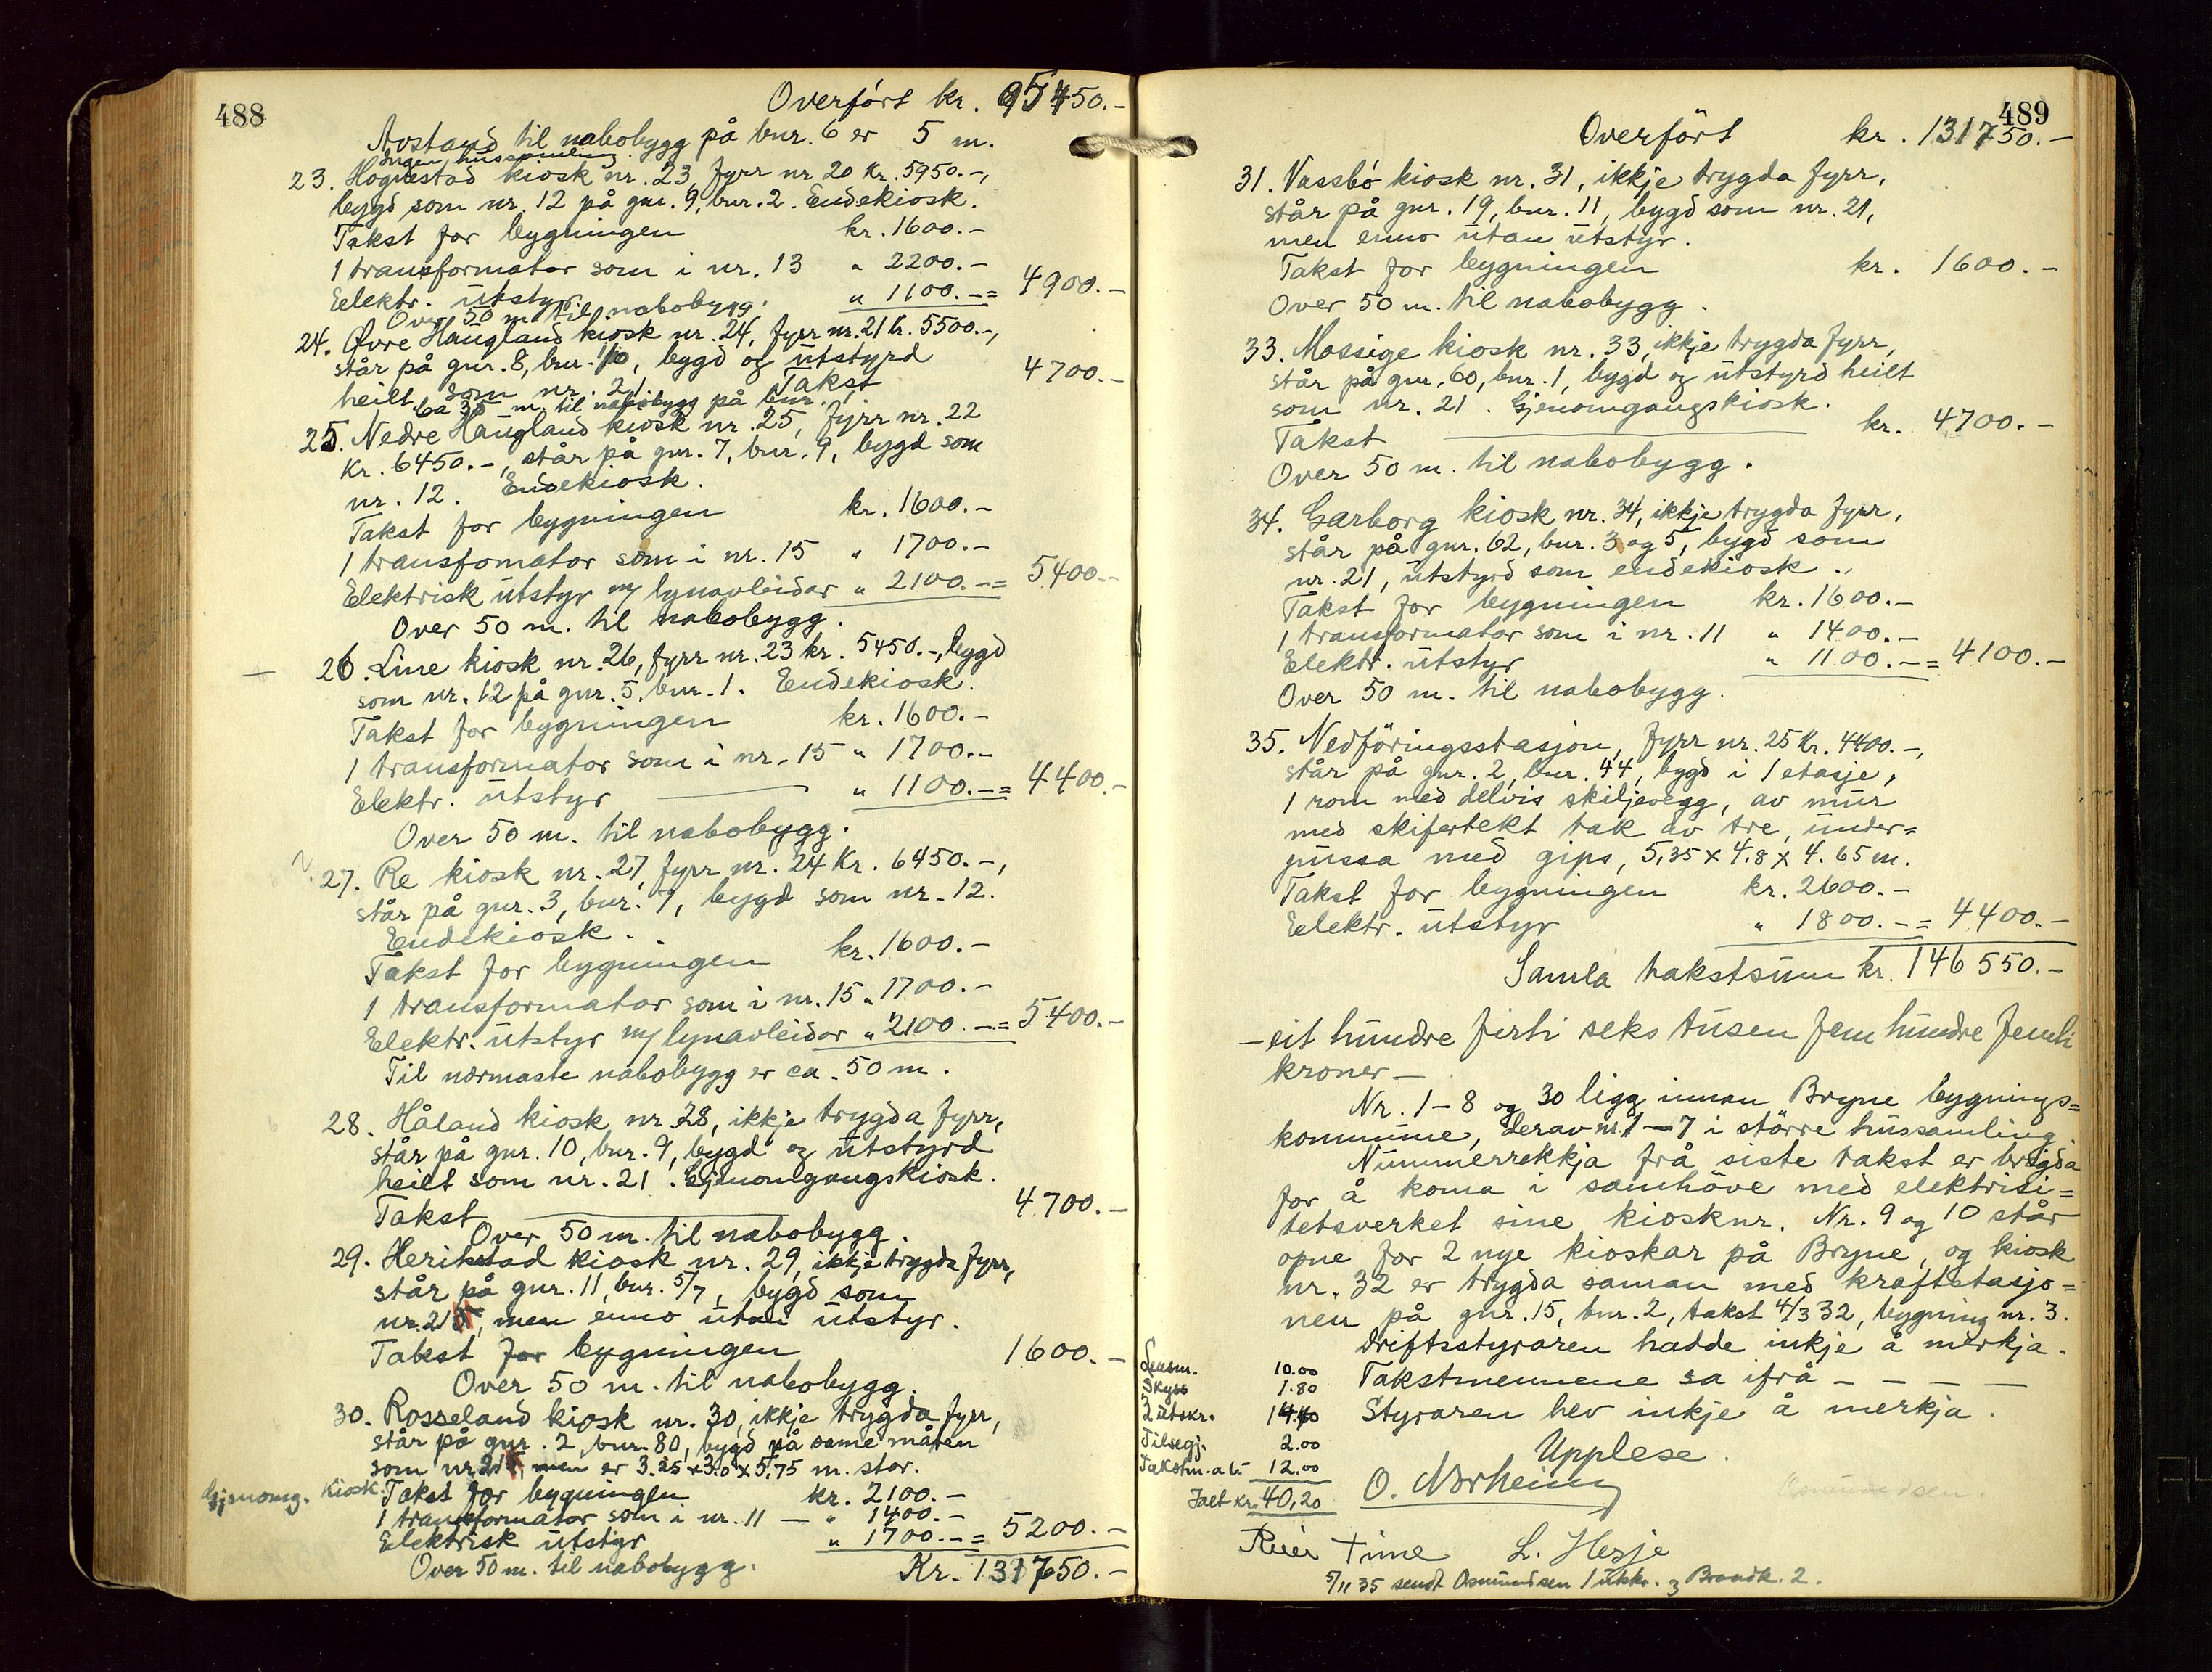 488
Overført kr. 95450.-
Avstand til nabobygg på bnr. 6 er 5 m.
Ingen hussamling.
23. Hognestad kiosk nr. 23, fyrr nr 20 kr. 5950.-,
bygd som nr. 12 på gnr. 9, bnr. 2. Endekiosk.
Takst for bygningen kr. 1600.-
1 transformator som i nr. 13 " 2200.-
Elektr. utstyr " 1100.- = 4900.-
Over 50 m til nabobygg.
24. Øvre Haugland kiosk nr. 24, fyrr nr. 21 kr. 5500.-,
står på gnr. 8, bnr. 10, bygd og utstyrd
heilt som nr. 21. Takst 4700.-
Ca 35 m. til nabobygg på bnr. 1.
25. Nedre Haugland kiosk nr. 25, fyrr nr. 22
kr. 6450.-, står på gnr. 7, bnr. 9, bygd som
nr. 12. Endekiosk.
Takst for bygningen kr. 1600.-
1 transfomator som i nr. 15 " 1700.-
Elektrisk utstyr m/ lynavleidar " 2100.- = 5400.-
Over 50 m. til nabobygg.
26. Line kiosk nr. 26, fyrr nr. 23 kr. 5450.-, bygd
som nr. 12 på gnr. 5, bnr. 1. Endekiosk.
Takst for bygningen kr. 1600.-
1 transformator som i nr. 15 " 1700.-
Elektr. utstyr " 1100.- = 4400.-
Over 50 m. til nabobygg.
27. Re kiosk nr. 27, fyrr nr. 24 Kr. 6450.-,
står på gnr. 3, bnr. 7, bygd som nr. 12.
Endekiosk.
Takst for bygningen kr. 1600.-
1 transformator som i nr. 15 " 1700.-
Elektr. utstyr m/ lynavleidor " 2100.- = 5400.-
Til nærmaste nabobygg er ca. 50 m.
28. Håland kiosk nr. 28, ikkje trygda fyrr,
står på gnr. 10, bnr. 9, bygd og utstyrd
heilt som nr. 21. Gjenomgangskiosk.
Takst 4700.-
Over 50 m. til nabobygg.
29. Herikstad kiosk nr. 29, ikkje trygda fyrr,
står på gnr. 11, bnr. 5/7, bygd som
nr. 21, men enno utan utstyr.
Takst for bygningen 1600.-
Over 50 m. til nabobygg.
30. Rosseland kiosk nr. 30, ikkje trygda fyrr,
står på gnr. 2, bnr. 80, bygd på same måten
som nr. 21, men er 3.25 x 3.0 x 5.75 m. stor.
Gjenomg. kiosk. Takst for bygningen kr. 2100.-
1 transformator som i nr. 11 — " 1400.-
Elektrisk utstyr " 1700.- = 5200.-
Over 50 m. til nabobygg. Kr. 131750.-
489
Overført kr. 131750.-
31. Vassbø kiosk nr. 31, ikkje trygda fyrr,
står på gnr. 19, bnr. 11, bygd som nr. 21,
men enno utan utstyr.
Takst for bygningen kr. 1600.-
Over 50 m. til nabobygg.
33. Mossige kiosk nr. 33, ikkje trygda fyrr,
står på gnr. 60, bnr. 1, bygd og utstyrd heilt
som nr. 21. Gjenomgangskiosk.
Takst kr. 4700.-
Over 50 m. til nabobygg.
34. Garborg kiosk nr. 34, ikkje trygda fyrr,
står på gnr. 62, bnr. 3 og 5, bygd som
nr. 21, utstyrd som endekiosk.
Takst for bygningen kr. 1600.-
1 transformator som i nr. 11 " 1400.-
Elektr. utstyr " 1100.- = 4100.-
Over 50 m. til nabobygg.
35. Nedføringsstasjon, fyrr nr. 25 Kr. 4400.-,
står på gnr. 2, bnr. 44, bygd i 1 etasje,
1 rom med delvis skiljevegg, av mur
med skifertekt tak av tre, under=
pussa med gips, 5,35 x 4.8 x 4.65 m.
Takst for bygningen kr. 2600.-
Elektr. utstyr " 1800.- = 4400.-
Samla takstsum kr. 146550.-
- eit hundre firti seks tusen fem hundre femti
kroner -
Nr. 1-8 og 30 ligg innan Bryne bygnings=
kommune, derav nr. 1-7 i større hussamling.
Nummerrekkja frå siste takst er brigda
for å koma i samhøve med elektrisi=
tetsverket sine kiosknr. Nr. 9 og 10 står
opne for 2 nye kioskar på Bryne, og kiosk
nr. 32 er trygda saman med kraftstasjo=
nen på gnr. 15, bnr. 2, takst 4/3 32, bygning nr. 3.
Driftsstyraren hadde inkje å merkja.
Takstmennene sa ifrå - - - -
Styraren hev inkje å merkja.
Upplese.
Lensm. 10.00
Skyss 1.80
2 utskr. 14.40
Tilsegj. 2.00
Takstm. a 6.- 12.00
Ialt kr. 40,20
O. Nørheim
Osmundsen.
Reier Time L. Hesje
5/11 35 sendt Osmundsen 1 utskr. og Brandk. 2.